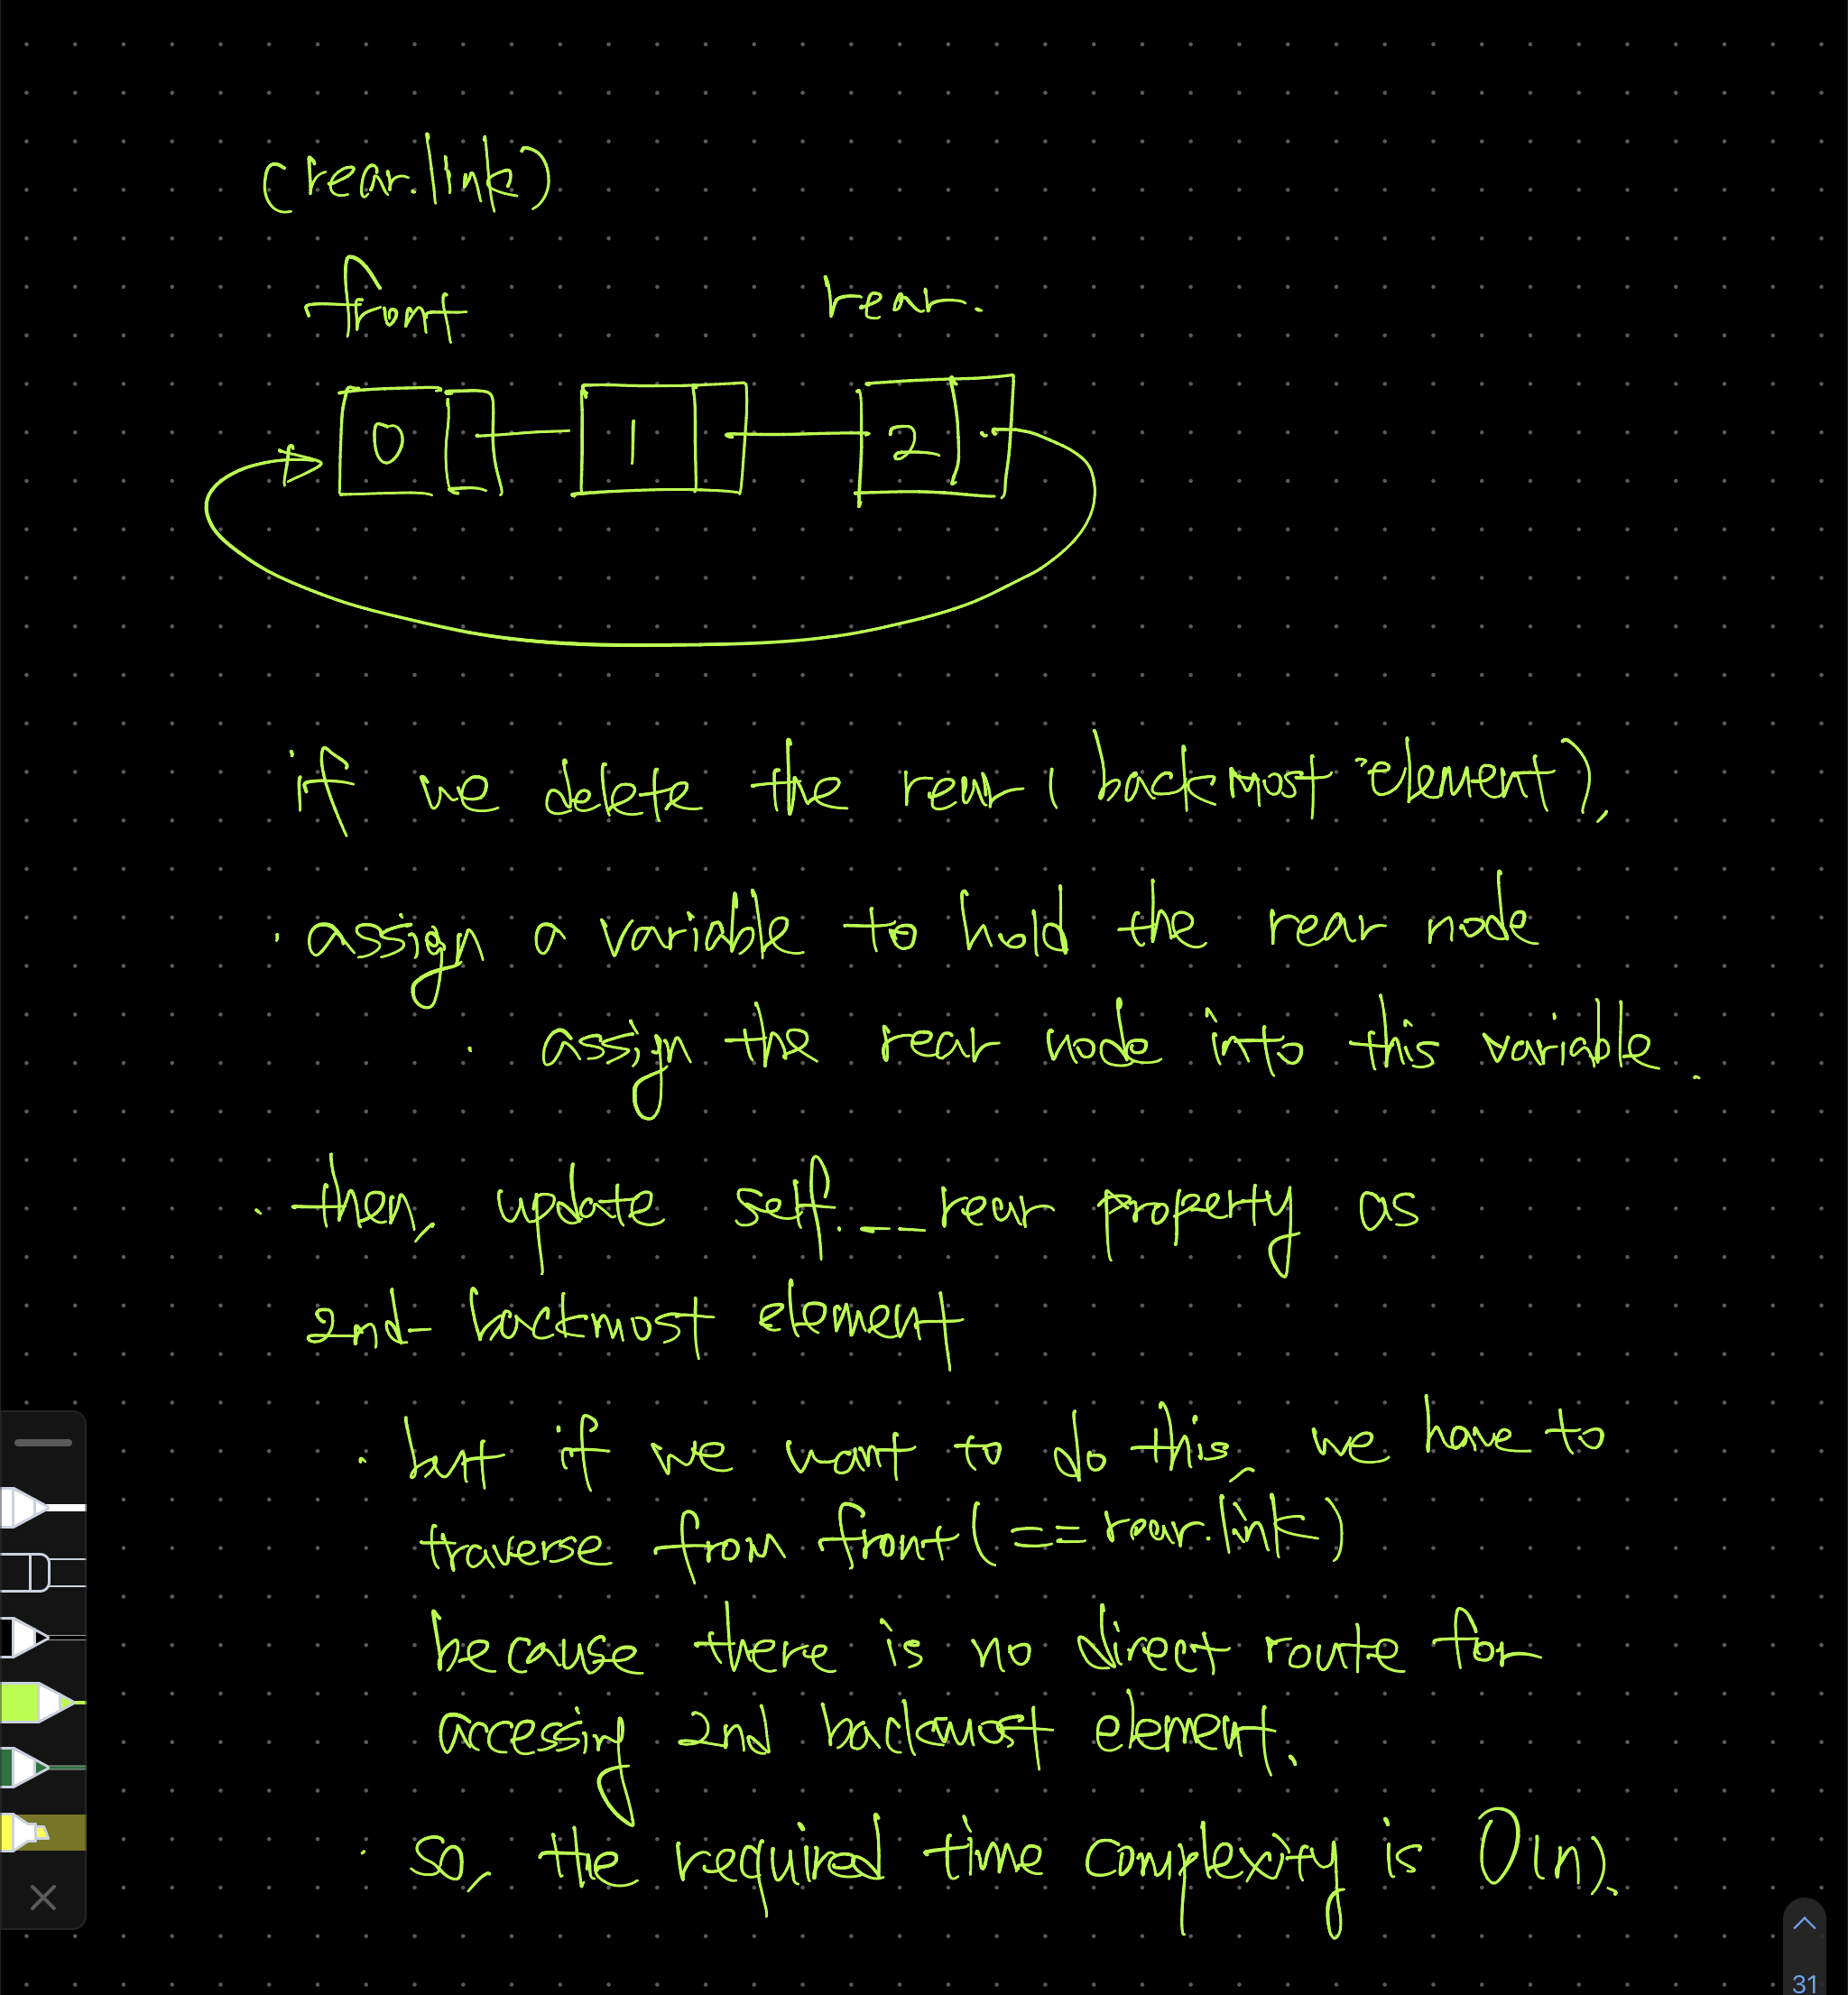 (rear.link)
front rear.
0 1 2
if we delete the rear ( backmost element),
· assign a variable to hold the rear node
· assign the rear node into this variable.
· then, update self.__rear property as
2nd- backmost element
· but if we want to do this, we have to
traverse from front (== rear.link)
because there is no direct route for
accessing 2nd backmost element.
· So, the required time complexity is O(n).
31